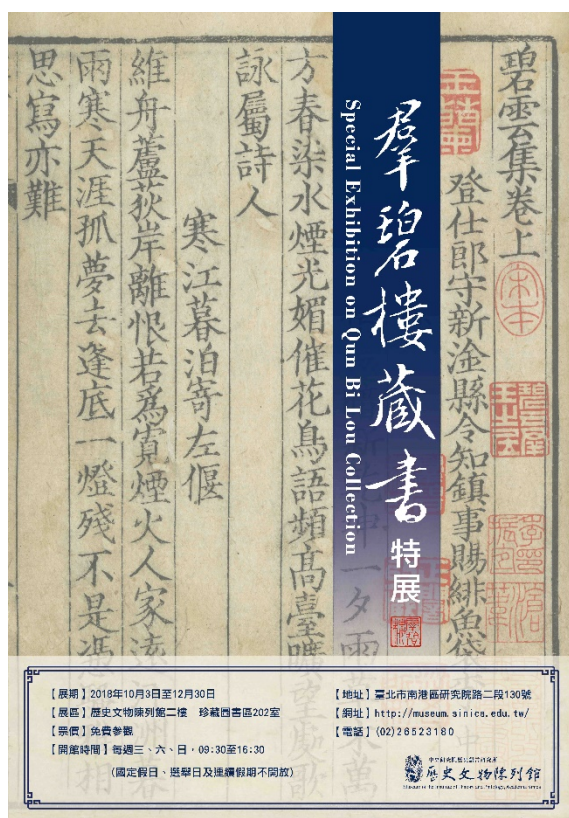 碧雲集卷上
登仕郎守新淦縣令知鎮事賜緋魚袋
一夕雨
方春染水煙光媚催花鳥語頻髙臺曠望處歌
詠屬詩人
寒江暮泊寄左偃
維舟蘆荻岸離恨若爲寬煙火人家遠
雨寒天涯孤夢去逢底一燈殘不是憑
相
思寫亦難
羣碧樓藏書特展
Special Exhibition on Qun Bi Lou Collection
【展期】2018年10月3日至12月30日
【展區】歷史文物陳列館二樓 珍藏圖書區202室
【票價】免費參觀
【開館時間】每週三、六、日，09:30至16:30
(國定假日、選舉日及連續假期不開放)
【地址】臺北市南港區研究院路二段130號
【網址】http://museum.sinica.edu.tw/
【電話】(02)26523180
中央研究院歷史語言研究所
歷史文物陳列館